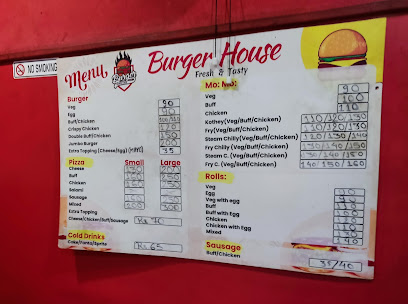 NO SMOKING
Menu
Burger House
Fresh & Tasty
Burger
Veg 90
Egg 90
Buff/Chicken
Crispy Chicken
Double Buff/Chicken
Jumbo Burger
Extra Topping (Cheese/Egg) 35
Pizza Small Large
Cheese
Buff
Chicken
Salami
Sausage
Mixed
Extra Topping
Cheese/Chicken/Buff/Sausage
Cold Drinks
Coke/Fanta/Sprite Rs 65
Mo: Mo:
Veg 90
Buff 100
Chicken 110
Kothey(Veg/Buff/Chicken) 110/120/130
Fry(Veg/Buff/Chicken) 110/120/130
Steam Chilly (Veg/Buff/Chicken) 120/130/140
Fry Chilly (Veg/Buff/Chicken) 130/140/150
Steam C. (Veg/Buff/Chicken) 130/140/150
Fry C. (Veg/Buff/Chicken) 140/150/160
Rolls:
Veg
Egg
Veg with egg
Buff
Buff with egg
Chicken
Chicken with egg
Mixed
Sausage
Buff/Chicken 35/40